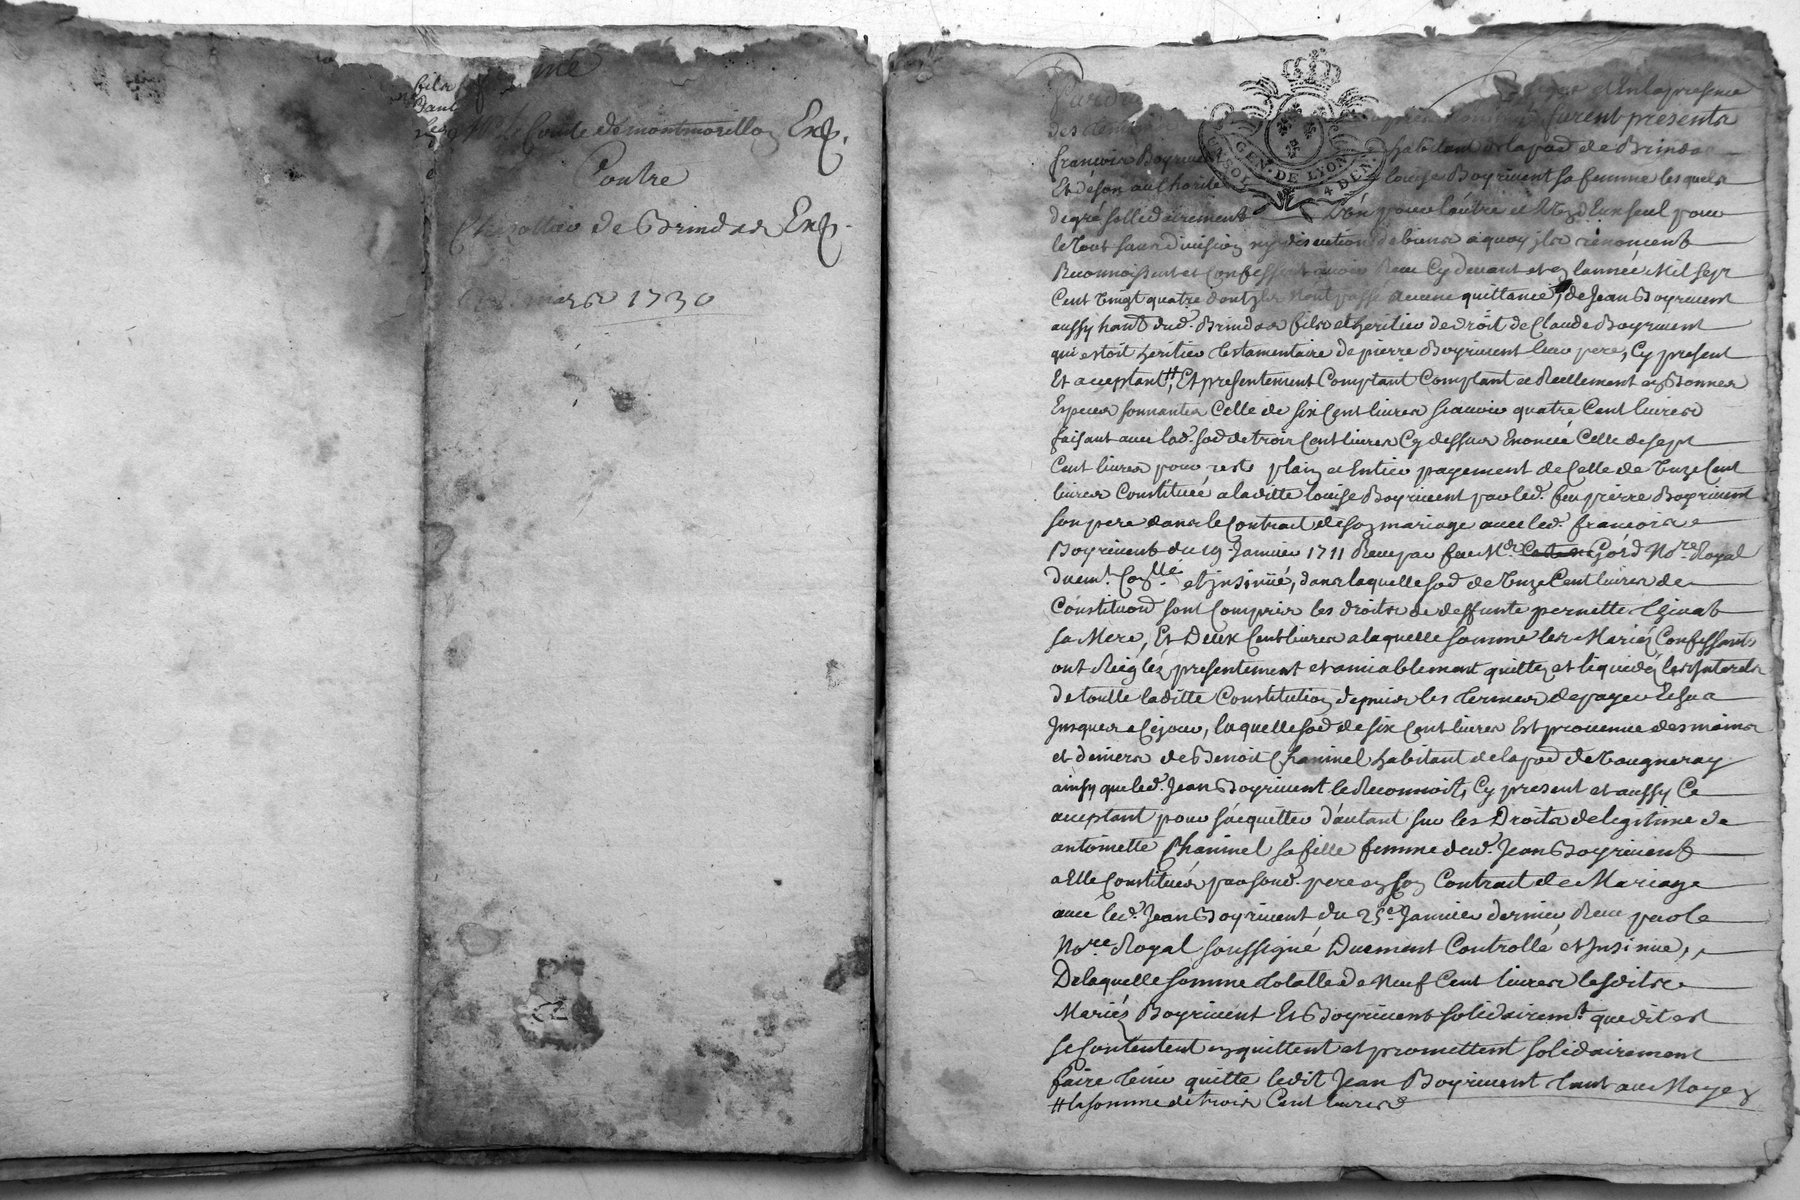 fils
dane
Mr Le Comte de montmorillon Exp.
Contre
Chipollieu de Brindas Exp.
mars 1730
GEN. DE LYON 4 DEN
Pardeva et En la presence
des temoins furent presents
francois Boyriuent habitant de la pad de Brindas
Et de son authorité louise Boyriuent sa femme lesquels
de gré sollidairement L'un pour l'autre et d'Eux seul pour
le tout sans diuision ny discution de biens a quoy jls renoncent
Reconnoissent et Confessent auoir Receu Cy deuant et en lannée Mil sept
Cent Vingt quatre dont jls n'ont passé aucune quittance, de Jean Boyriuent
aussy hant dud. Brindas fils et heritier de droit de Claude Boyriuent
qui estoit heritier testamentaire de pierre Boyriuent leur pere, Cy present
Et acceptant #, Et presentement Comptant Comptant et Reellement en Bonnes
Especes sonnantes Celle de six Cent liures scauoir quatre Cent liures
faisant auec lad. sod de trois Cent liures Cy dessus Enoncée Celle de sept
Cent liures pour reste plain et Entier payement de Celle de Unze Cent
liures Constituée a laditte louise Boyriuent par led. feu pierre Boyriuent
son pere dans le Contract de son mariage auec led. francois
Boyriuent du 19 Januier 1711 Receu par feu Mr Gord Nore. Royal
duemt. Conllé et jnsinüé, dans laquelle sod de Unze Cent liures de
Constituond sont Compris les droits de deffunte pernette
sa Mere, Et Deux Cent liures a laquelle somme les Mariez Confessants
ont Reiglés presentement et amiablement quittez et liquidéz les Interets
de toutte laditte Constitution depuis les termes de payer Echus
Jusques a Ce jour, laquelle sod de six Cent liures Est prouenue des mains
et deniers de Benoit Chaninel habitant de la pad de Vaugneray
ainsy que led. Jean Boyriuent le Reconnoit, Cy present et aussy Ce
acceptant pour s'acquitter d'autant sur les Droits de legitime de
antoinette Chaninel sa fille femme dud. Jean Boyriuent
a Elle Constitués par sond. pere en son Contract de Mariage
auec led. Jean Boyriuent du 25e Januier dernier Receu par le
Nore Royal soussigné Duement Controllé et Insinué,
De laquelle somme totalle de Neuf Cent liures lesdits
Mariés Boyriuent Et Boyriuent solidairemt. que dit est
se Contentent en quittent et promettent solidairement
faire tenir quitte ledit Jean Boyriuent tant au Moyen
# la somme de trois Cent liures